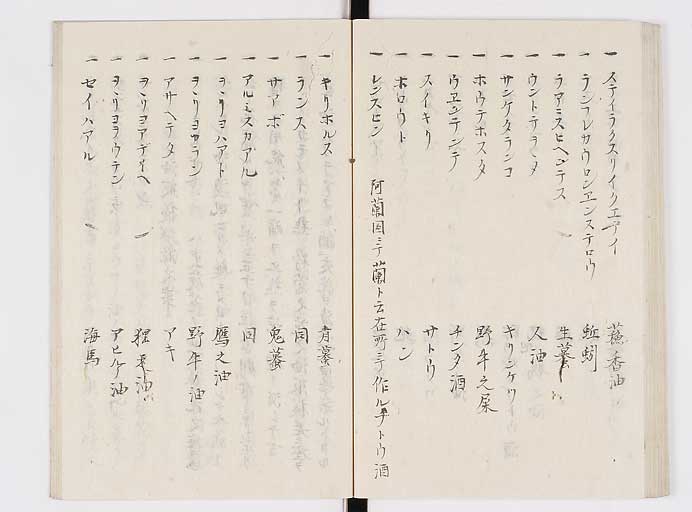 一 ステイラクスリイクエアイ 蘓香油
一 テンフレカウロンヱンステロウ 蚯蚓
一 ラアミスヒヘンテス 生蟇
一 ウントテラメヌ 人油
一 サンケタランコ キリンケツ
一 ホウテホスタ 野牛之屎
一 ウヱンテンテ チンタ酒
一 スイキリ サトウ
一 ホロウト ハン
一 レンスヒン 阿蘭国ニテ蘭ト云在所ニテ作ルブトウ酒
一 キリホルス 青蟇
一 ランス 同
一 サアボ 鬼蟇
一 アルミスカアル 同
一 ヲヽリヨハアト 鷹之油
一 ヲヽリヨカラン 野牛ノ油
一 アサヘテタ アキ
一 ヲヽリヨアデイヘ 狸ノ油
一 ヲヽリヨラウテン アヒケ油
一 セイハアル 海馬